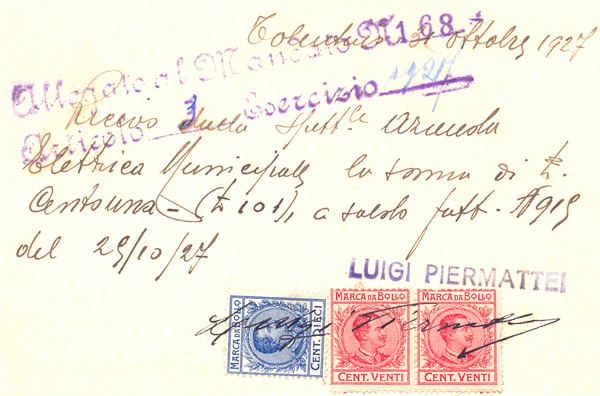 Tolentino 31 ottobre 1927
Allegato al Mandato N 168
Articolo 3 Esercizio 1927
Ricevo dalla Spett.le Azienda
Elettrica Municipale la somma di £.
Centouna - (£ 101), a saldo fatt. N
del 29/10/27
LUIGI PIERMATTEI
MARCA DA BOLLO
CENT. DIECI
MARCA DA BOLLO
CENT. VENTI
MARCA DA BOLLO
CENT. VENTI
Luigi Piermattei